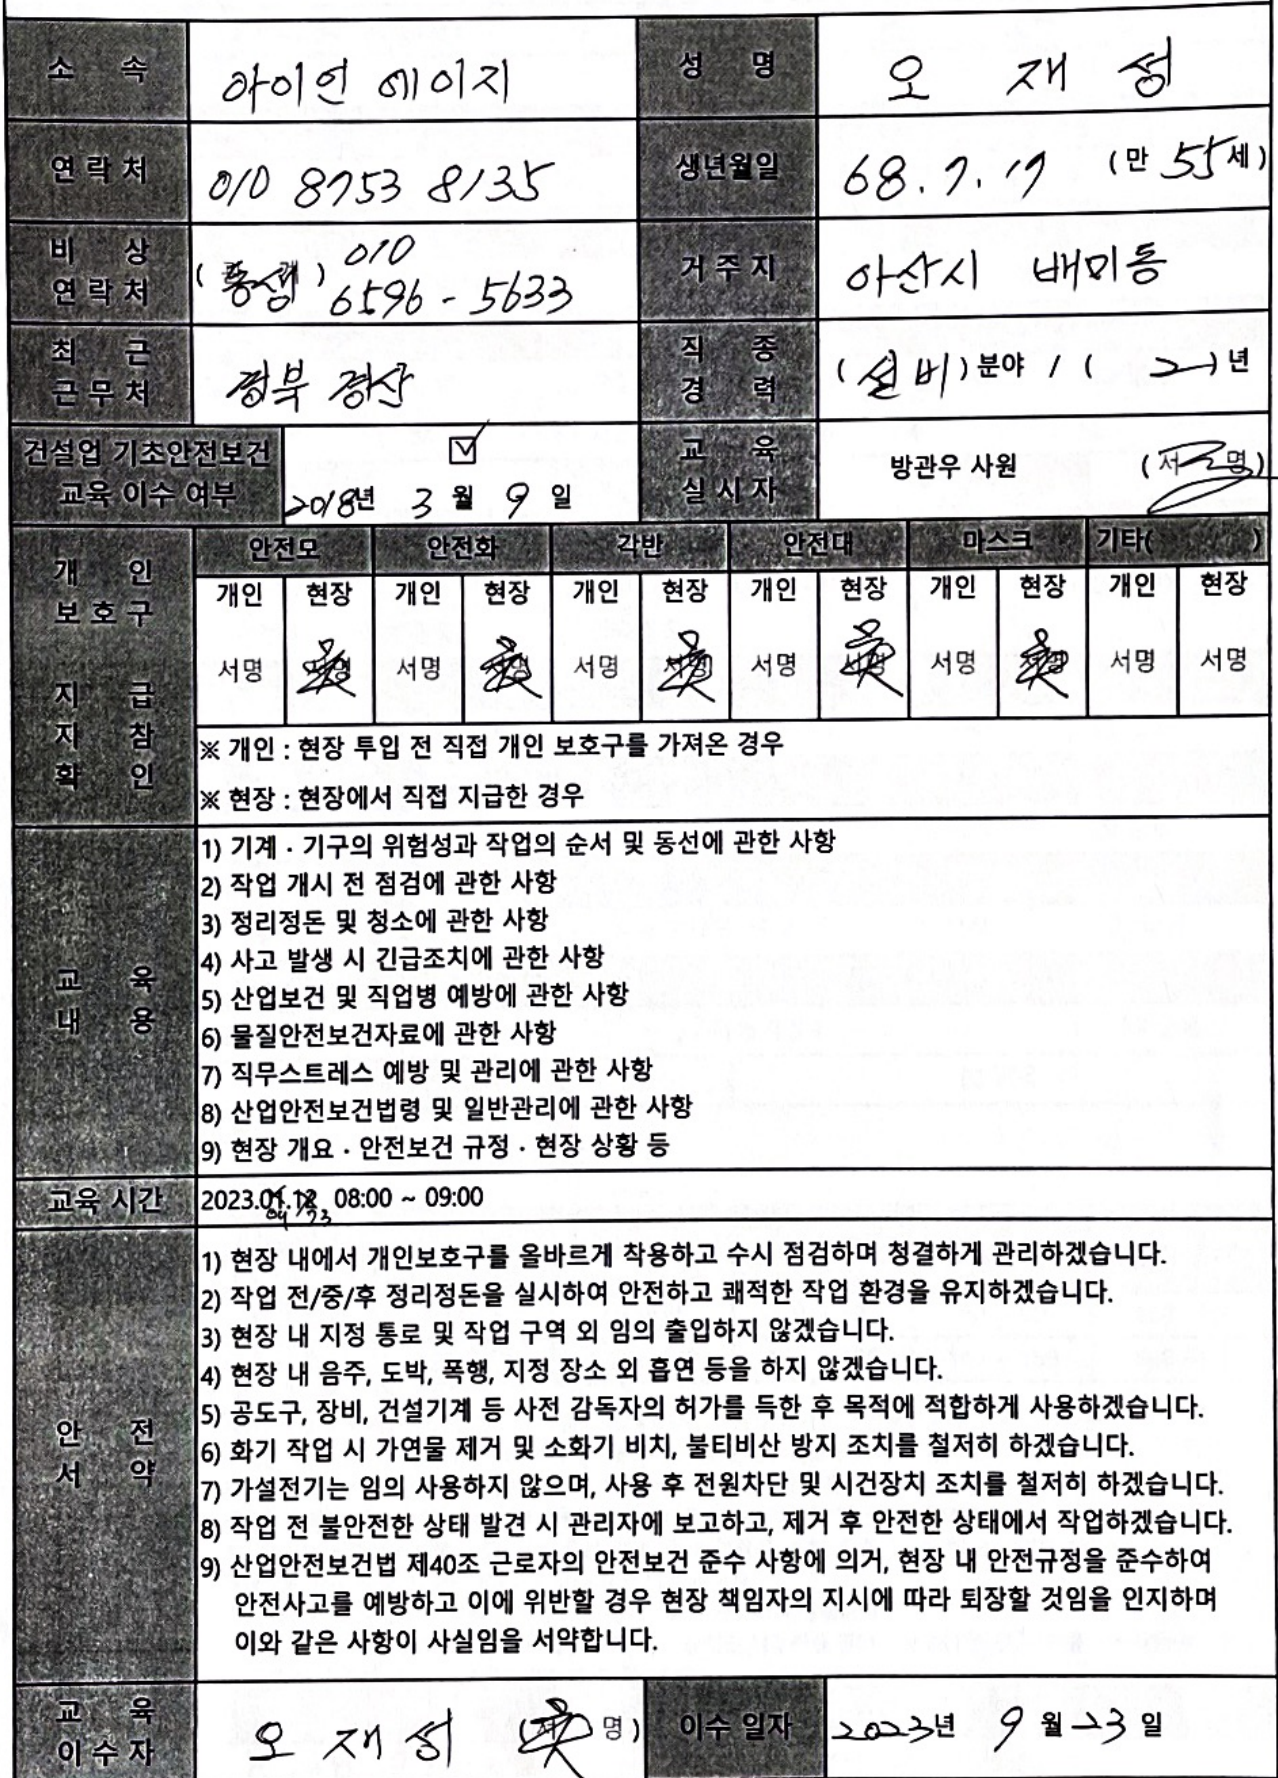 소 속 아이언 에이지 성 명 오 재 성
연 락 처 010 8753 8135 생년월일 68. 7. 17 (만 55세)
비 상 연 락 처 (동생) 010 6596 - 5633 거 주 지 아산시 배미동
최 근 근 무 처 경북 경산 직 종 경 력 (설비)분야 / ( 2 )년
건설업 기초안전보건 교육 이수 여부 ☑ 2018년 3 월 9 일 교 육 실 시 자 방관우 사원 (서 명)
개 인 보 호 구 지 급 지 참 확 인
안전모 안전화 각반 안전대 마스크 기타( )
개인 현장 개인 현장 개인 현장 개인 현장 개인 현장 개인 현장
서명 서명 서명 서명 서명 서명 서명 서명 서명 서명 서명 서명
※ 개인 : 현장 투입 전 직접 개인 보호구를 가져온 경우
※ 현장 : 현장에서 직접 지급한 경우
교 육 내 용
1) 기계 · 기구의 위험성과 작업의 순서 및 동선에 관한 사항
2) 작업 개시 전 점검에 관한 사항
3) 정리정돈 및 청소에 관한 사항
4) 사고 발생 시 긴급조치에 관한 사항
5) 산업보건 및 직업병 예방에 관한 사항
6) 물질안전보건자료에 관한 사항
7) 직무스트레스 예방 및 관리에 관한 사항
8) 산업안전보건법령 및 일반관리에 관한 사항
9) 현장 개요 · 안전보건 규정 · 현장 상황 등
교육 시간 2023. 08:00 ~ 09:00
09 23
안 전 서 약
1) 현장 내에서 개인보호구를 올바르게 착용하고 수시 점검하며 청결하게 관리하겠습니다.
2) 작업 전/중/후 정리정돈을 실시하여 안전하고 쾌적한 작업 환경을 유지하겠습니다.
3) 현장 내 지정 통로 및 작업 구역 외 임의 출입하지 않겠습니다.
4) 현장 내 음주, 도박, 폭행, 지정 장소 외 흡연 등을 하지 않겠습니다.
5) 공도구, 장비, 건설기계 등 사전 감독자의 허가를 득한 후 목적에 적합하게 사용하겠습니다.
6) 화기 작업 시 가연물 제거 및 소화기 비치, 불티비산 방지 조치를 철저히 하겠습니다.
7) 가설전기는 임의 사용하지 않으며, 사용 후 전원차단 및 시건장치 조치를 철저히 하겠습니다.
8) 작업 전 불안전한 상태 발견 시 관리자에 보고하고, 제거 후 안전한 상태에서 작업하겠습니다.
9) 산업안전보건법 제40조 근로자의 안전보건 준수 사항에 의거, 현장 내 안전규정을 준수하여
안전사고를 예방하고 이에 위반할 경우 현장 책임자의 지시에 따라 퇴장할 것임을 인지하며
이와 같은 사항이 사실임을 서약합니다.
교 육 이 수 자 오 재 성 (서 명) 이수 일자 2023년 9 월 23 일